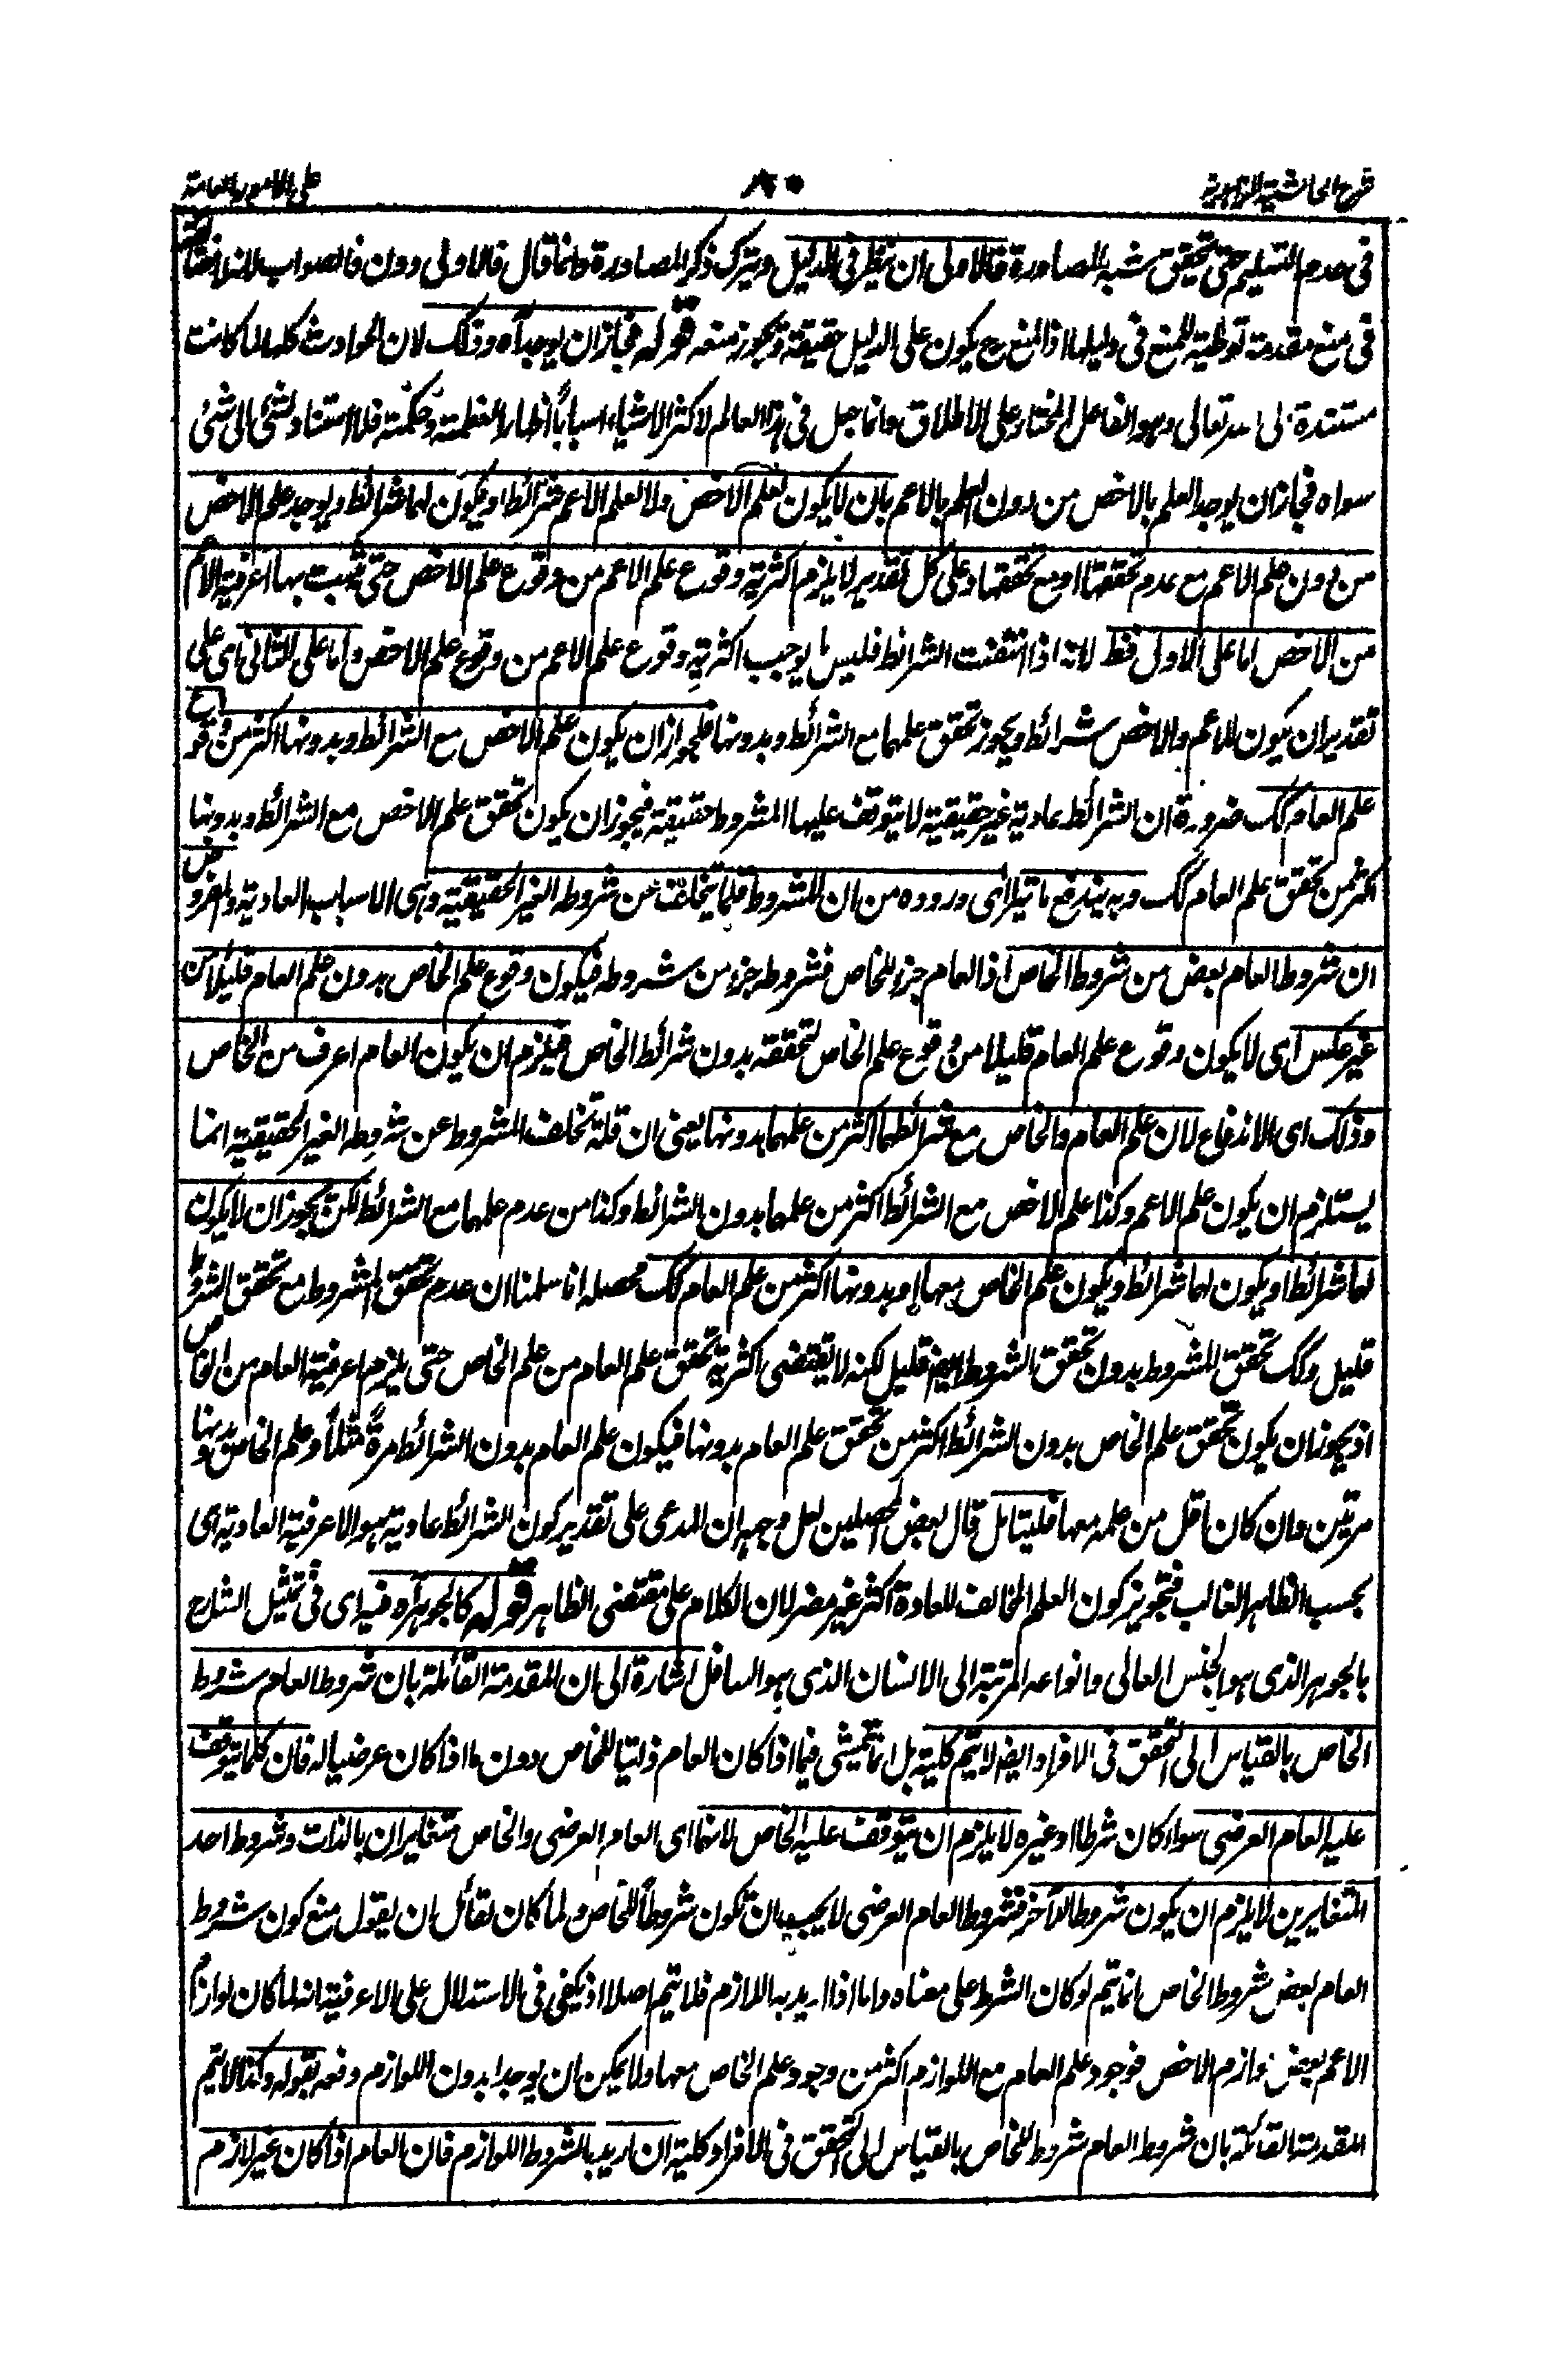 شرح الحاشية الزاهدية
٨٠
على الامور العامة
فى عدم التسليم حتى تحقيق شبه المصادرة فالاولى ان ينظر فى الدليل ويترك ذكر المصادرة وانما قال فالاولى دون فالصواب
فى منع مقدمة توطئية للمنع فى دليلها اذ المنع ح يكون على الدليل حقيقة ويجوز منعه قوله فجاز ان يوجد آه وذلك لان الحوادث كلها لما كانت
مستندة الى الله تعالى وهو الفاعل المختار على الاطلاق وانما جعل فى هذا العالم لاكثر الاشياء اسبابا اظهارا لعظمته وحكمته فلا استناد لشئ الى شئ
سواه فجاز ان يوجد العلم بالاخص من دون العلم بالاعم بان لا يكون لعلم الاخص ولا لعلم الاعم شرائط او يكون لهما شرائط ويوجد علم الاخص
من دون علم الاعم مع عدم تحققها او مع تحققها وعلى كل تقدير لا يلزم اكثرية وقوع علم الاعم من وقوع علم الاخص حتى تثبت بها اعرفية الاعم
من الاخص اما على الاول فظ لانه اذا انتفت الشرائط فليس ما يوجب اكثرية وقوع علم الاعم من وقوع علم الاخص واما على الثانى اى على
تقدير ان يكون للاعم والاخص شرائط ويجوز تحقق علمهما مع الشرائط وبدونها فلجواز ان يكون علم الاخص مع الشرائط وبدونها اكثر من وقوع
علم العام كك ضرورة ان الشرائط عادية غير حقيقية لا يتوقف عليها المشروط حقيقة فيجوز ان يكون تحقق علم الاخص مع الشرائط وبدونها
اكثر من تحقق علم العام كك وبه يندفع ما يترا أى وروده من ان المشروط قلما يتخلف عن شروطه الغير الحقيقية وهى الاسباب العادية والمفروض
ان شروط العام بعض من شروط الخاص اذ العام جزء للخاص فشروطه جزء من شروطه فيكون وقوع علم الخاص بدون علم العام قليلا من
غير عكس اى لا يكون وقوع علم العام قليلا من وقوع علم الخاص لتحققه بدون شرائط الخاص فيلزم ان يكون العام اعرف من الخاص
وذلك اى الاندفاع لان علم العام والخاص مع شرائطهما اكثر من علمهما بدونها يعنى ان قلة تخلف المشروط عن شروطه الغير الحقيقية انما
يستلزم ان يكون علم الاعم وكذا علم الاخص مع الشرائط اكثر من علمهما بدون الشرائط وكذا من عدم علمهما مع الشرائط لكن يجوز ان لا يكون
لهما شرائط او يكون لهما شرائط ويكون علم الخاص معها او بدونها اكثر من علم العام كك محصله انا سلمنا ان عدم تحقق المشروط مع تحقق الشروط
قليل وكك تحقق المشروط بدون تحقق الشروط ايضا قليل لكنه لا يقتضى اكثرية تحقق علم العام من علم الخاص حتى يلزم اعرفية العام من الخاص
اذ يجوز ان يكون تحقق علم الخاص بدون الشرائط اكثر من تحقق علم العام بدونها فيكون علم العام بدون الشرائط مرة مثلا وعلم الخاص بدونها
مرتين وان كان اقل من علمه معها فليتامل قال بعض المحصلين لعل وجهه ان المدعى على تقدير كون الشرائط عادية هو الاعرفية العادية اى
بحسب الظاهر الغالب فتجويز كون العلم المخالف للعادة اكثر غير مضر لان الكلام على مقتضى الظاهر قوله كالجوهر آه فيه اى فى تمثيل الشارح
بالجوهر الذى هو الجنس العالى وانواعه المرتبة الى الانسان الذى هو السافل اشارة الى ان المقدمة القائلة بان شروط العام شروط
الخاص بالقياس الى التحقق فى الافراد ايضا لا يتم كلية بل انما يتمشى فيما اذا كان العام ذاتيا للخاص دون ما اذا كان عرضيا له فان كلما يتوقف
عليه العام العرضى سواء كان شرطا او غيره لا يلزم ان يتوقف عليه الخاص لانهما اى العام العرضى والخاص متغايران بالذات وشروط احد
المتغايرين لا يلزم ان يكون شروط الآخر فشروط العام العرضى لا يجب ان تكون شروطا للخاص ولما كان لقائل ان يقول منع كون شروط
العام بعض شروط الخاص انما يتم لو كان الشرط على معناه واما اذا اريد به اللازم فلا يتم اصلا اذ يكفى فى الاستدلال على الاعرفية انه لما كان لوازم
الاعم بعض لوازم الاخص فوجود علم العام مع اللوازم اكثر من وجود علم الخاص معها ولا يمكن ان يوجدا بدون اللوازم دفعه بقوله وكذا لا يتم
المقدمة القائلة بان شروط العام شروط للخاص بالقياس الى التحقق فى الافراد كلية ان اريد بالشروط اللوازم فان العام اذا كان غير لازم